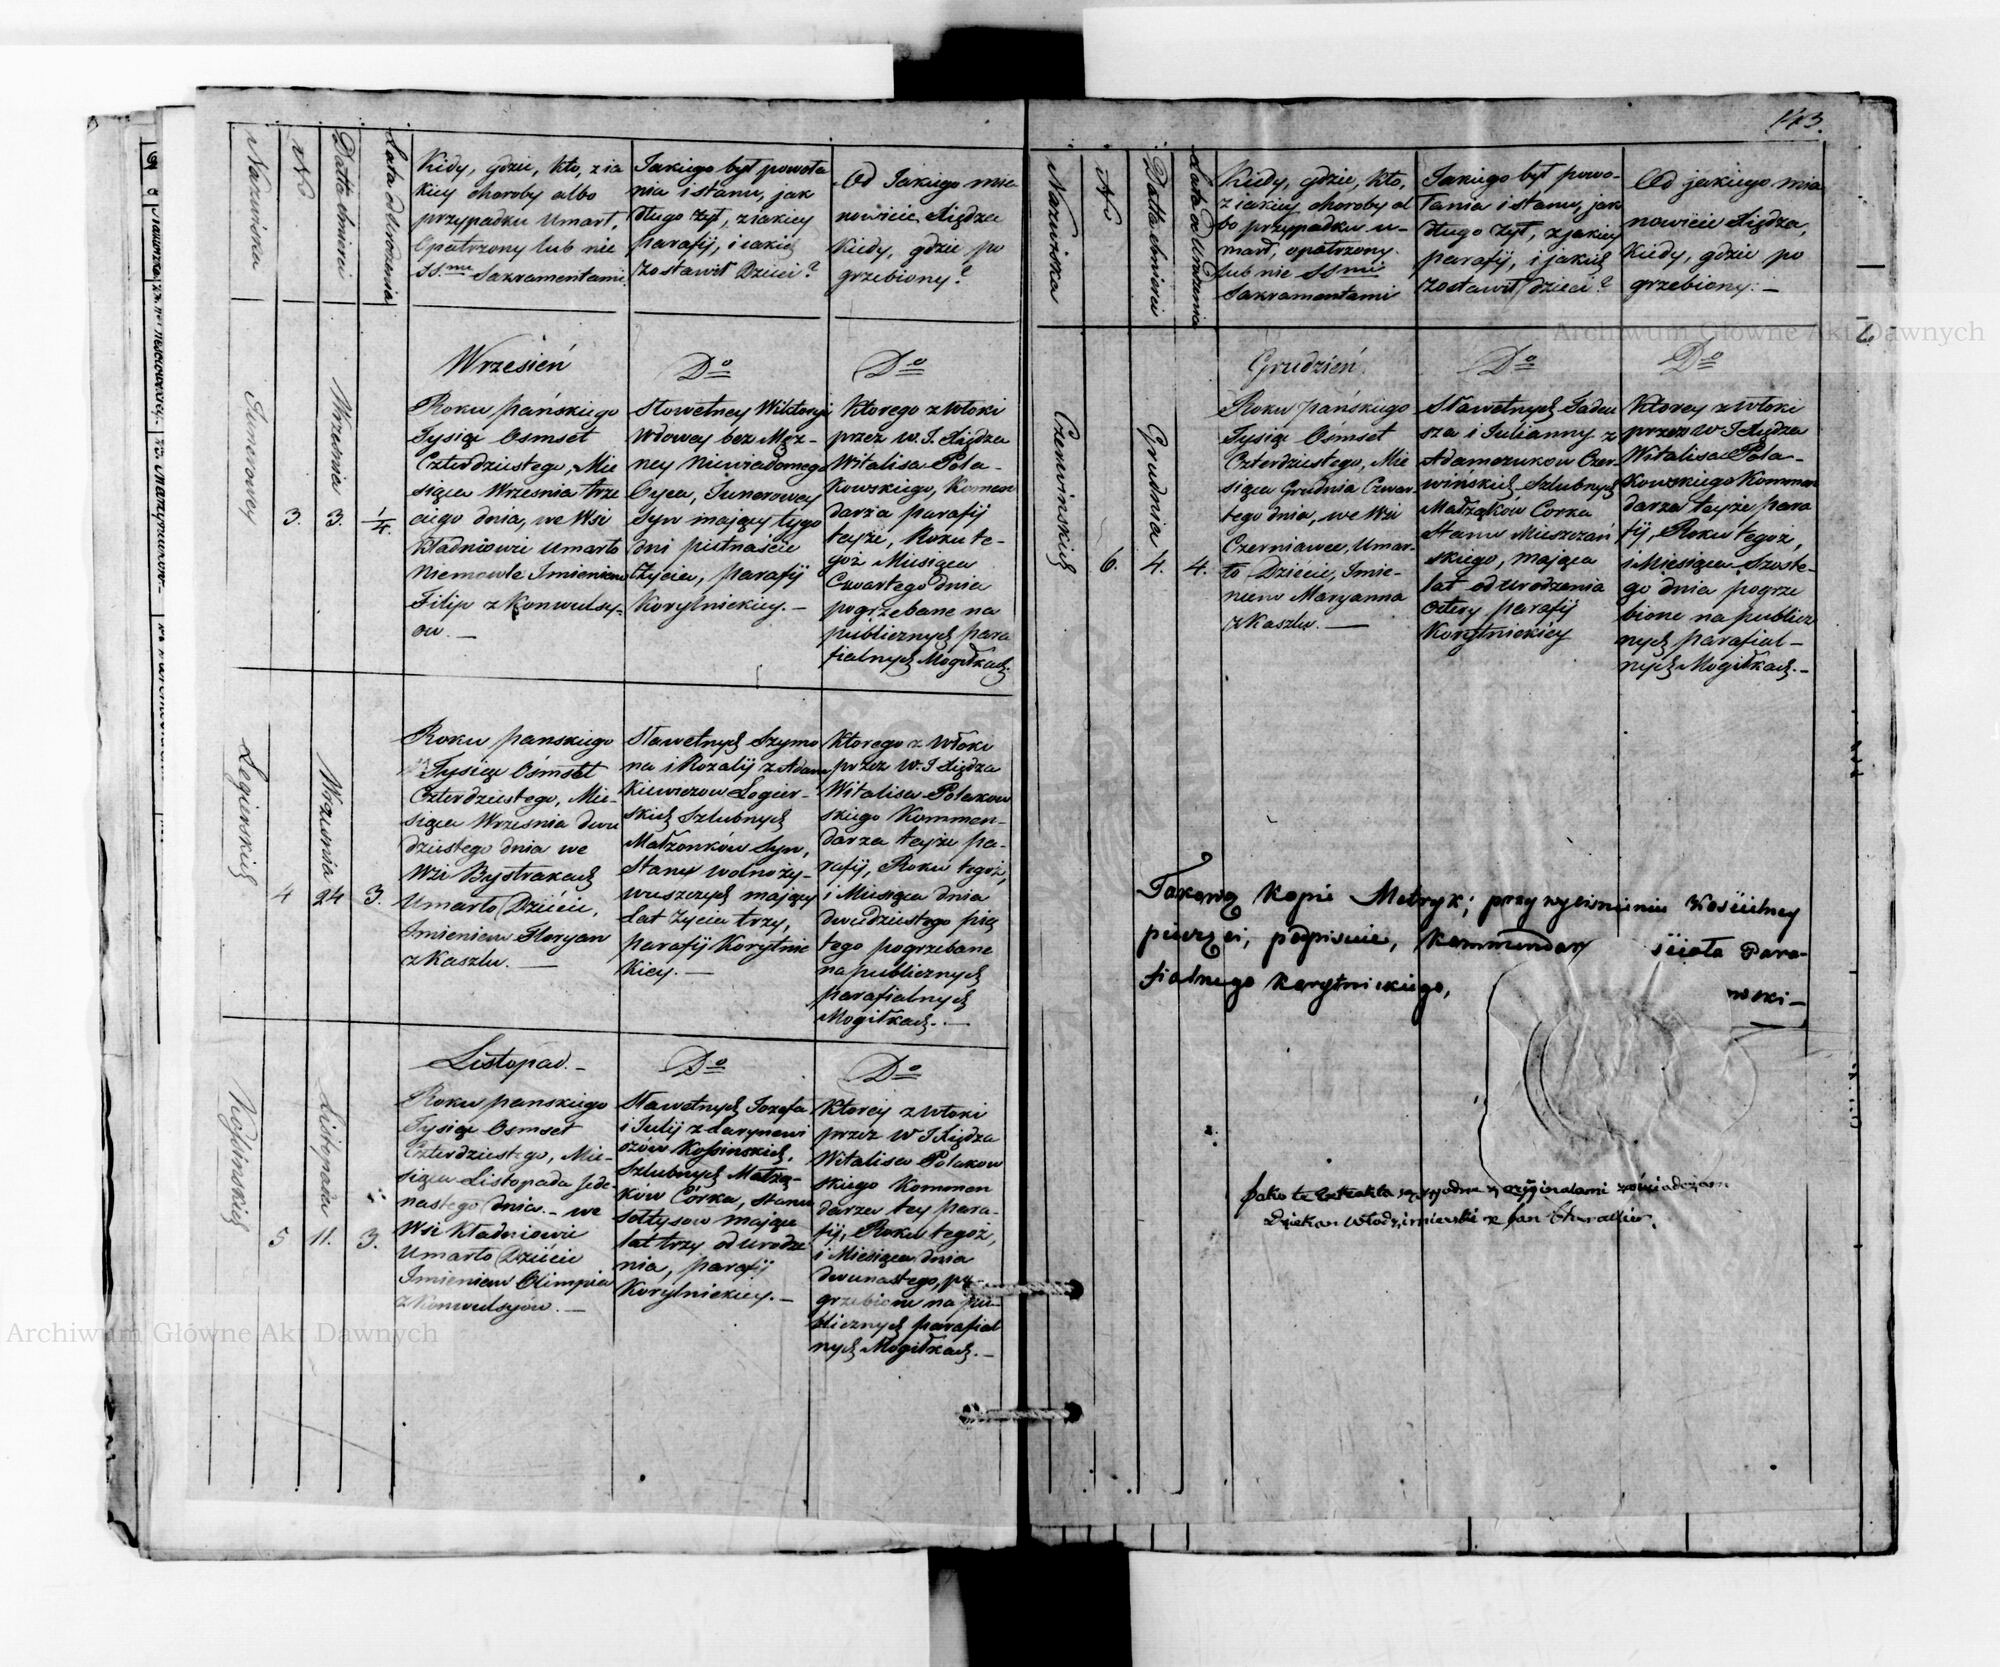 143.
Nazwiska
No
Datta śmierci
Lata od Urodzenia
Kiedy, gdzie, kto, z ja
kiey choroby albo
przypadku umarł,
Opatrzony lub nie
SS.mi Sakramentami.
Jakiego był powoła
nia i stanu, jak
długo żył, z jakiey
parafij, i jakie
zostawił Dzieci?
Od Jakiego mia
nowicie Xiędza
Kiedy, gdzie po
grzebiony?
Junerowey
3.
Września
3.
1/4.
Wrzesień
Roku Pańskiego
Tysiąc Osmset
Czterdziestego, Mie
siąca Wrzesnia trze
ciego dnia, we Wsi
Kładniowie umarło
Niemowle Imieniem
Filip z Konwulsy-
ow. —
Do
Sławetney Wiktoryi
Wdowey bez Męż-
ney Niewiadomego
Oyca, Junerowey
Syn mający tygo
dni pietnaście
Życia, parafij
Korytnickiey. —
Do
Ktorego zwłoki
przez W. J. Xiędza
Witalisa Pola-
kowskiego, Komen
darza parafij
teyże, Roku te-
goż Miesiąca
Czwartego dnia
pogrzebane na
publicznych para
fialnych Mogiłkach.
Legierskich
4
Września
24
3.
Roku panskiego
Tysiąc Osmset
Czterdziestego, Mie-
siąca Wrzesnia dwu
dziestego dnia we
Wsi Bystrakach
Umarło Dziécie,
Imieniem Floryan
z Kaszlu. —
Sławetnych Szymo
na i Rozalij z Adam
kiewiczow Legier-
skich Szlubnych
Małżonków Syn,
Stanu wolno ży-
wuszczych mający
Lat Życia trzy,
parafij Korytnic
kiey. —
Ktorego zwłoki
przez W. J Xiędza
Witalisa Polakow
skiego Kommen-
darza teyże pa-
rafij, Roku tegoż,
i Miesiąca dnia
dwudziestego pią
tego pogrzebane
na publicznych
parafialnych
Mogiłkach. —
Kossinskich
5
Listopada
11.
3.
Listopad. —
Roku panskiego
Tysiąc Osmset
Czterdziestego, Mie-
siąca Listopada jede-
nastego dnia — we
Wsi Kładniowie
Umarło Dziécie
Imieniem Olimpia
z Konwulsyów. —
Do
Sławetnych Jozefa
i Julij z
czów Kossinskich,
Szlubnych Małżą-
ków Córka, stanu
sołtysow mająca
lat trzy od urodze
nia, parafij
Korytnickiey. —
Do
Ktorey zwłoki
przez W J Xiędza
Witalisa Polakow
skiego Kommen
darza tey para-
fij, Roku tegoż,
i Miesiąca dnia
dwunastego, po-
grzebione na pu-
blicznych parafial
nych Mogiłkach. —
Nazwiska
No
Datta śmierci
Lata od Urodzenia
Kiedy, gdzie, kto,
z jakiey choroby al
bo przypadku u-
marł, opatrzony
lub nie SSmi
Sakramentami
Jakiego był powo-
łania i stanu, jak
długo żył, z jakiey
parafij, i jakich
zostawił dzieci?
Od jakiego mia
nowicie Xiędza,
Kiedy, gdzie po
grzebiony. —
Czerwinskich
6.
Grudnia
4.
4.
Grudzień.
Roku Pańskiego
Tysiąc Ośmset
Czterdziestego, Mie
siąca Grudnia Czwar-
tego dnia, we Wsi
Czerniawce, Umar-
ło Dziécie, Imie-
niem Maryanna
z Kaszlu. —
Do
Sławetnych Tadeu
sza i Julianny z
Adamczukow Czer-
wińskich Szlubnych
Małżąków Corka
Stanu Mieszczań
skiego, mająca
lat od urodzenia
cztery parafij
Korytnickiéy
Do
Ktorey zwłoki
przez W J Xiędza
Witalisa Pola-
kowskiego Kommen
darza teyże para
fij, Roku tegoż,
i Miesiąca Szoste-
go dnia pogrze
bione na publicz
nych parafial-
nych Mogiłkach. —
Takową Kopie Metryk; przy wyciśnieniu Kościelney
pieczęci, podpisuie, Kommendarz ścioła Para-
fialnego Korytnickiego, wski —
Jako te Extrakta są zgodne z oryginałami zaświadczam
Dziekan Włodzimierski X Jan
Archiwum Główne Akt Dawnych
Archiwum Główne Akt Dawnych